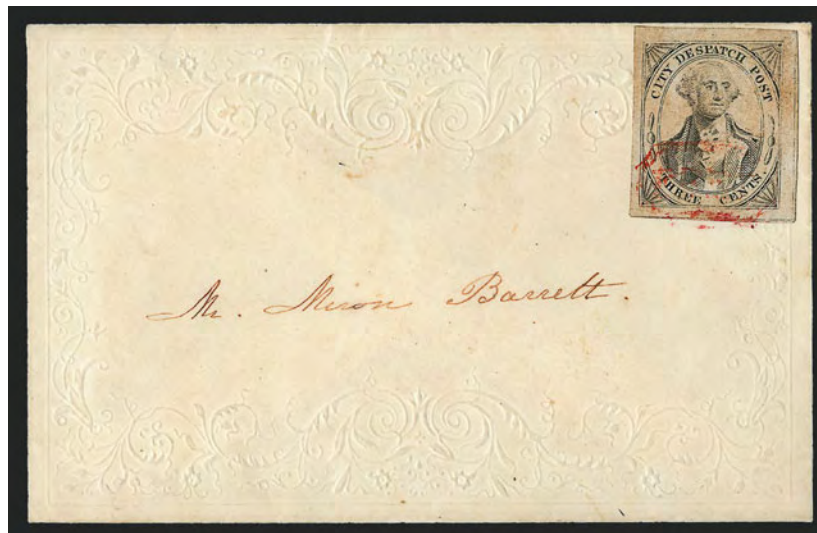 CITY DESPATCH POST
THREE CENTS.
Mr. Miron Barrett.